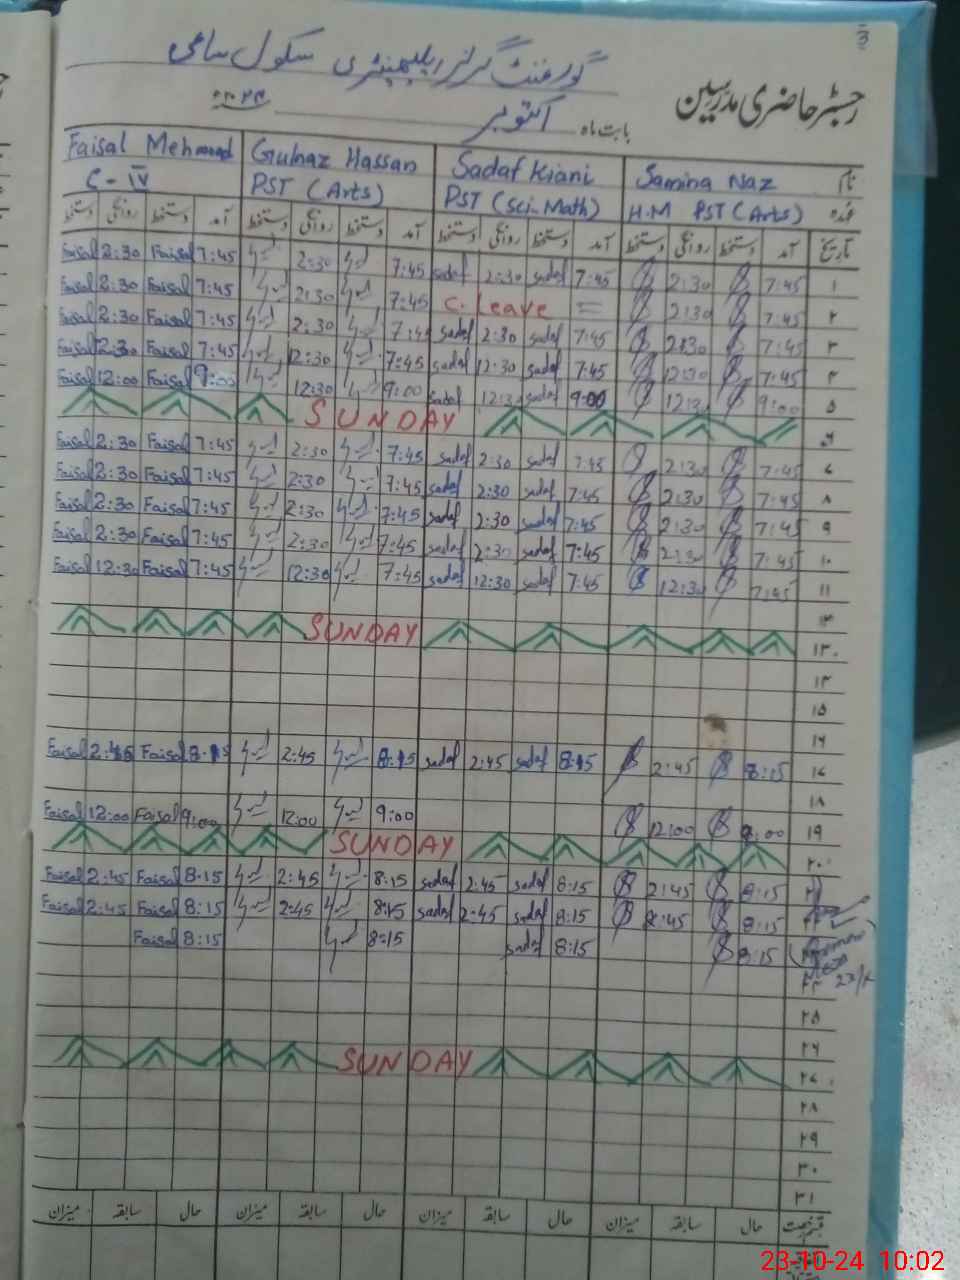 3
گورنمنٹ گرلز ایلیمنٹری سکول
رجسٹر حاضری مدرسین
بابت ماہ اکتوبر ۲۰۲۴ء
Faisal Mehmood Gulnaz Hassan Sadaf Kiani Samina Naz نام
C-IV PST (Arts) PST (Sci-Math) H.M PST (Arts) عہدہ
دستخط روانگی دستخط آمد دستخط روانگی دستخط آمد دستخط روانگی دستخط آمد دستخط روانگی دستخط آمد تاریخ
Faisal 2:30 Faisal 7:45 2:30 7:45 sadaf 2:30 sadaf 7:45 2:30 7:45 ۱
Faisal 2:30 Faisal 7:45 2:30 7:45 C. Leave = 2:30 7:45 ۲
Faisal 2:30 Faisal 7:45 2:30 7:45 sadaf 2:30 sadaf 7:45 2:30 7:45 ۳
Faisal 2:30 Faisal 7:45 12:30 7:45 sadaf 12:30 sadaf 7:45 12:30 7:45 ۴
Faisal 12:00 Faisal 9:00 12:30 9:00 sadaf 12:30 sadaf 9:00 12:30 9:00 ۵
SUNDAY ۶
Faisal 2:30 Faisal 7:45 2:30 7:45 sadaf 2:30 sadaf 7:45 2:30 7:45
Faisal 2:30 Faisal 7:45 2:30 7:45 sadaf 2:30 sadaf 7:45 2:30 7:45 ۸
Faisal 2:30 Faisal 7:45 2:30 7:45 sadaf 2:30 sadaf 7:45 2:30 7:45 ۹
Faisal 2:30 Faisal 7:45 2:30 7:45 sadaf 2:30 sadaf 7:45 2:30 7:45 ۱۰
Faisal 12:30 Faisal 7:45 12:30 7:45 sadaf 12:30 sadaf 7:45 12:30 7:45 ۱۱
۱۲
SUNDAY ۱۳
۱۴
۱۵
۱۶
Faisal 2:45 Faisal 8:15 2:45 8:15 sadaf 2:45 sadaf 8:15 2:45 8:15
۱۸
Faisal 12:00 Faisal 9:00 12:00 9:00 12:00 9:00 ۱۹
SUNDAY ۲۰
Faisal 2:45 Faisal 8:15 2:45 8:15 sadaf 2:45 sadaf 8:15 2:45 8:15 ۲۱
Faisal 2:45 Faisal 8:15 2:45 8:15 sadaf 2:45 sadaf 8:15 2:45 8:15 ۲۲
Faisal 8:15 8:15 sadaf 8:15 8:15
۲۴
۲۵
۲۶
SUNDAY ۲۷
۲۸
۲۹
۳۰
۳۱
میزان سابقہ حال میزان سابقہ حال میزان سابقہ حال میزان سابقہ حال قسم رخصت
23-10-24 10:02